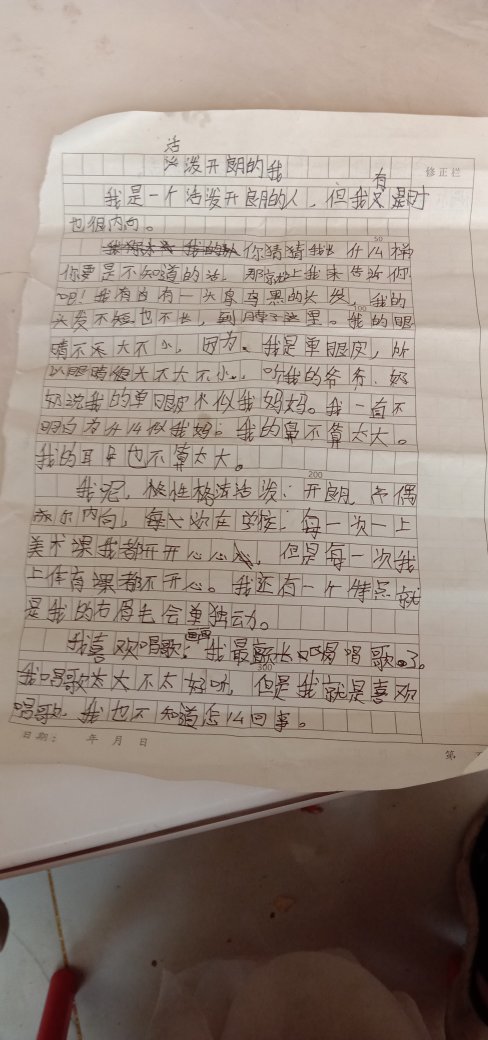 活
泼开朗的我
修正栏
有
我是一个活泼开朗的人，但我又是时
也很内向。
50
你猜猜我长什么样
你要是不知道的话，那就让我来告诉你
吧！我有一头乌黑的头发，我的
头发不短也不长，到脖子这里。我的眼
睛不大不小，因为，我是单眼皮，所
以眼睛很大不大不小。听我的爷爷、奶
奶说我的单眼皮不似我妈妈。我一直不
明白为什么似我妈。我的鼻不算太大。
我的耳朵也不算太大。
200
我呢，性格活泼；开朗，偶
尔内向，每次在学校；每一次一上
美术课我都开开心心，但是每一次我
上体育课都不开心。我还有一个特点就
是我的右眉毛会单独动。
画画
我喜欢唱歌，我最擅长唱歌了。
300
我唱歌太大不太好听，但是我就是喜欢
唱歌，我也不知道怎么回事。
日期： 年 月 日
第